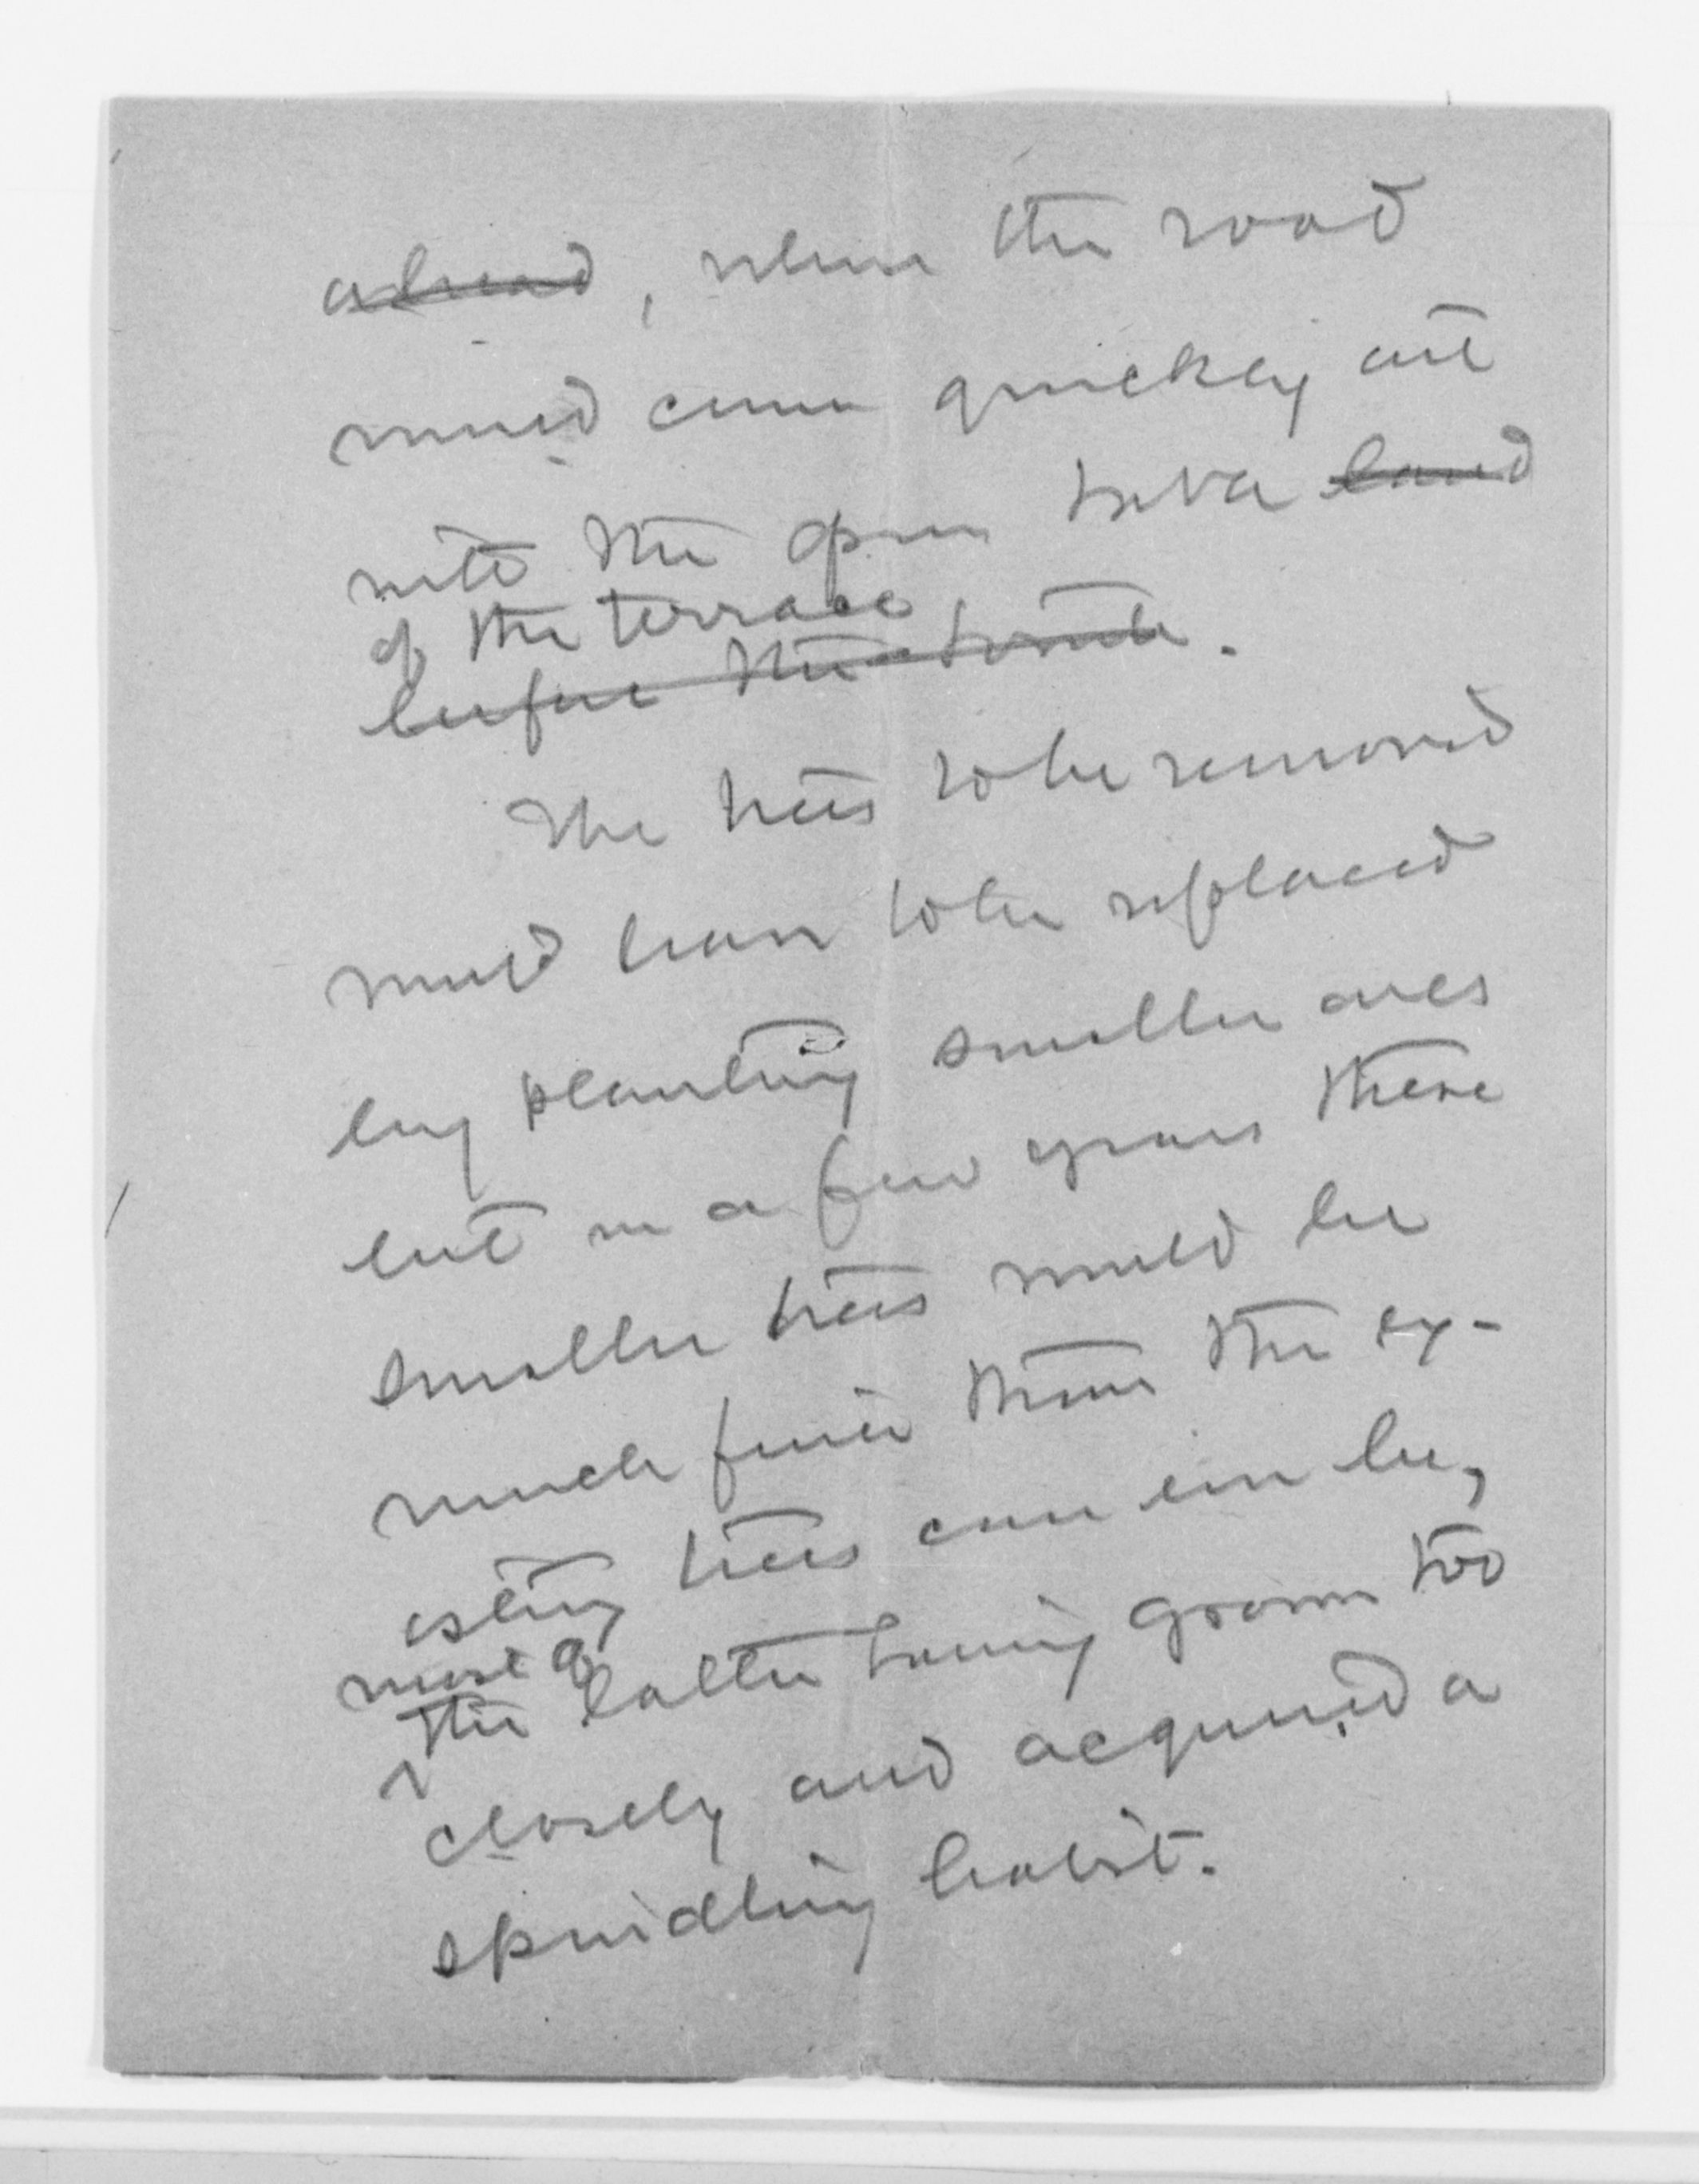 ahead, where the road
would come quickly out
into the open land
of the terrace
before the tomb.
The trees to be removed
would have to be replaced
by planting smaller ones
but in a few years these
smaller trees would be
much finer than the ex-
isting trees can ever be,
most of
the latter having grown too
closely and acquired a
spindling habit.